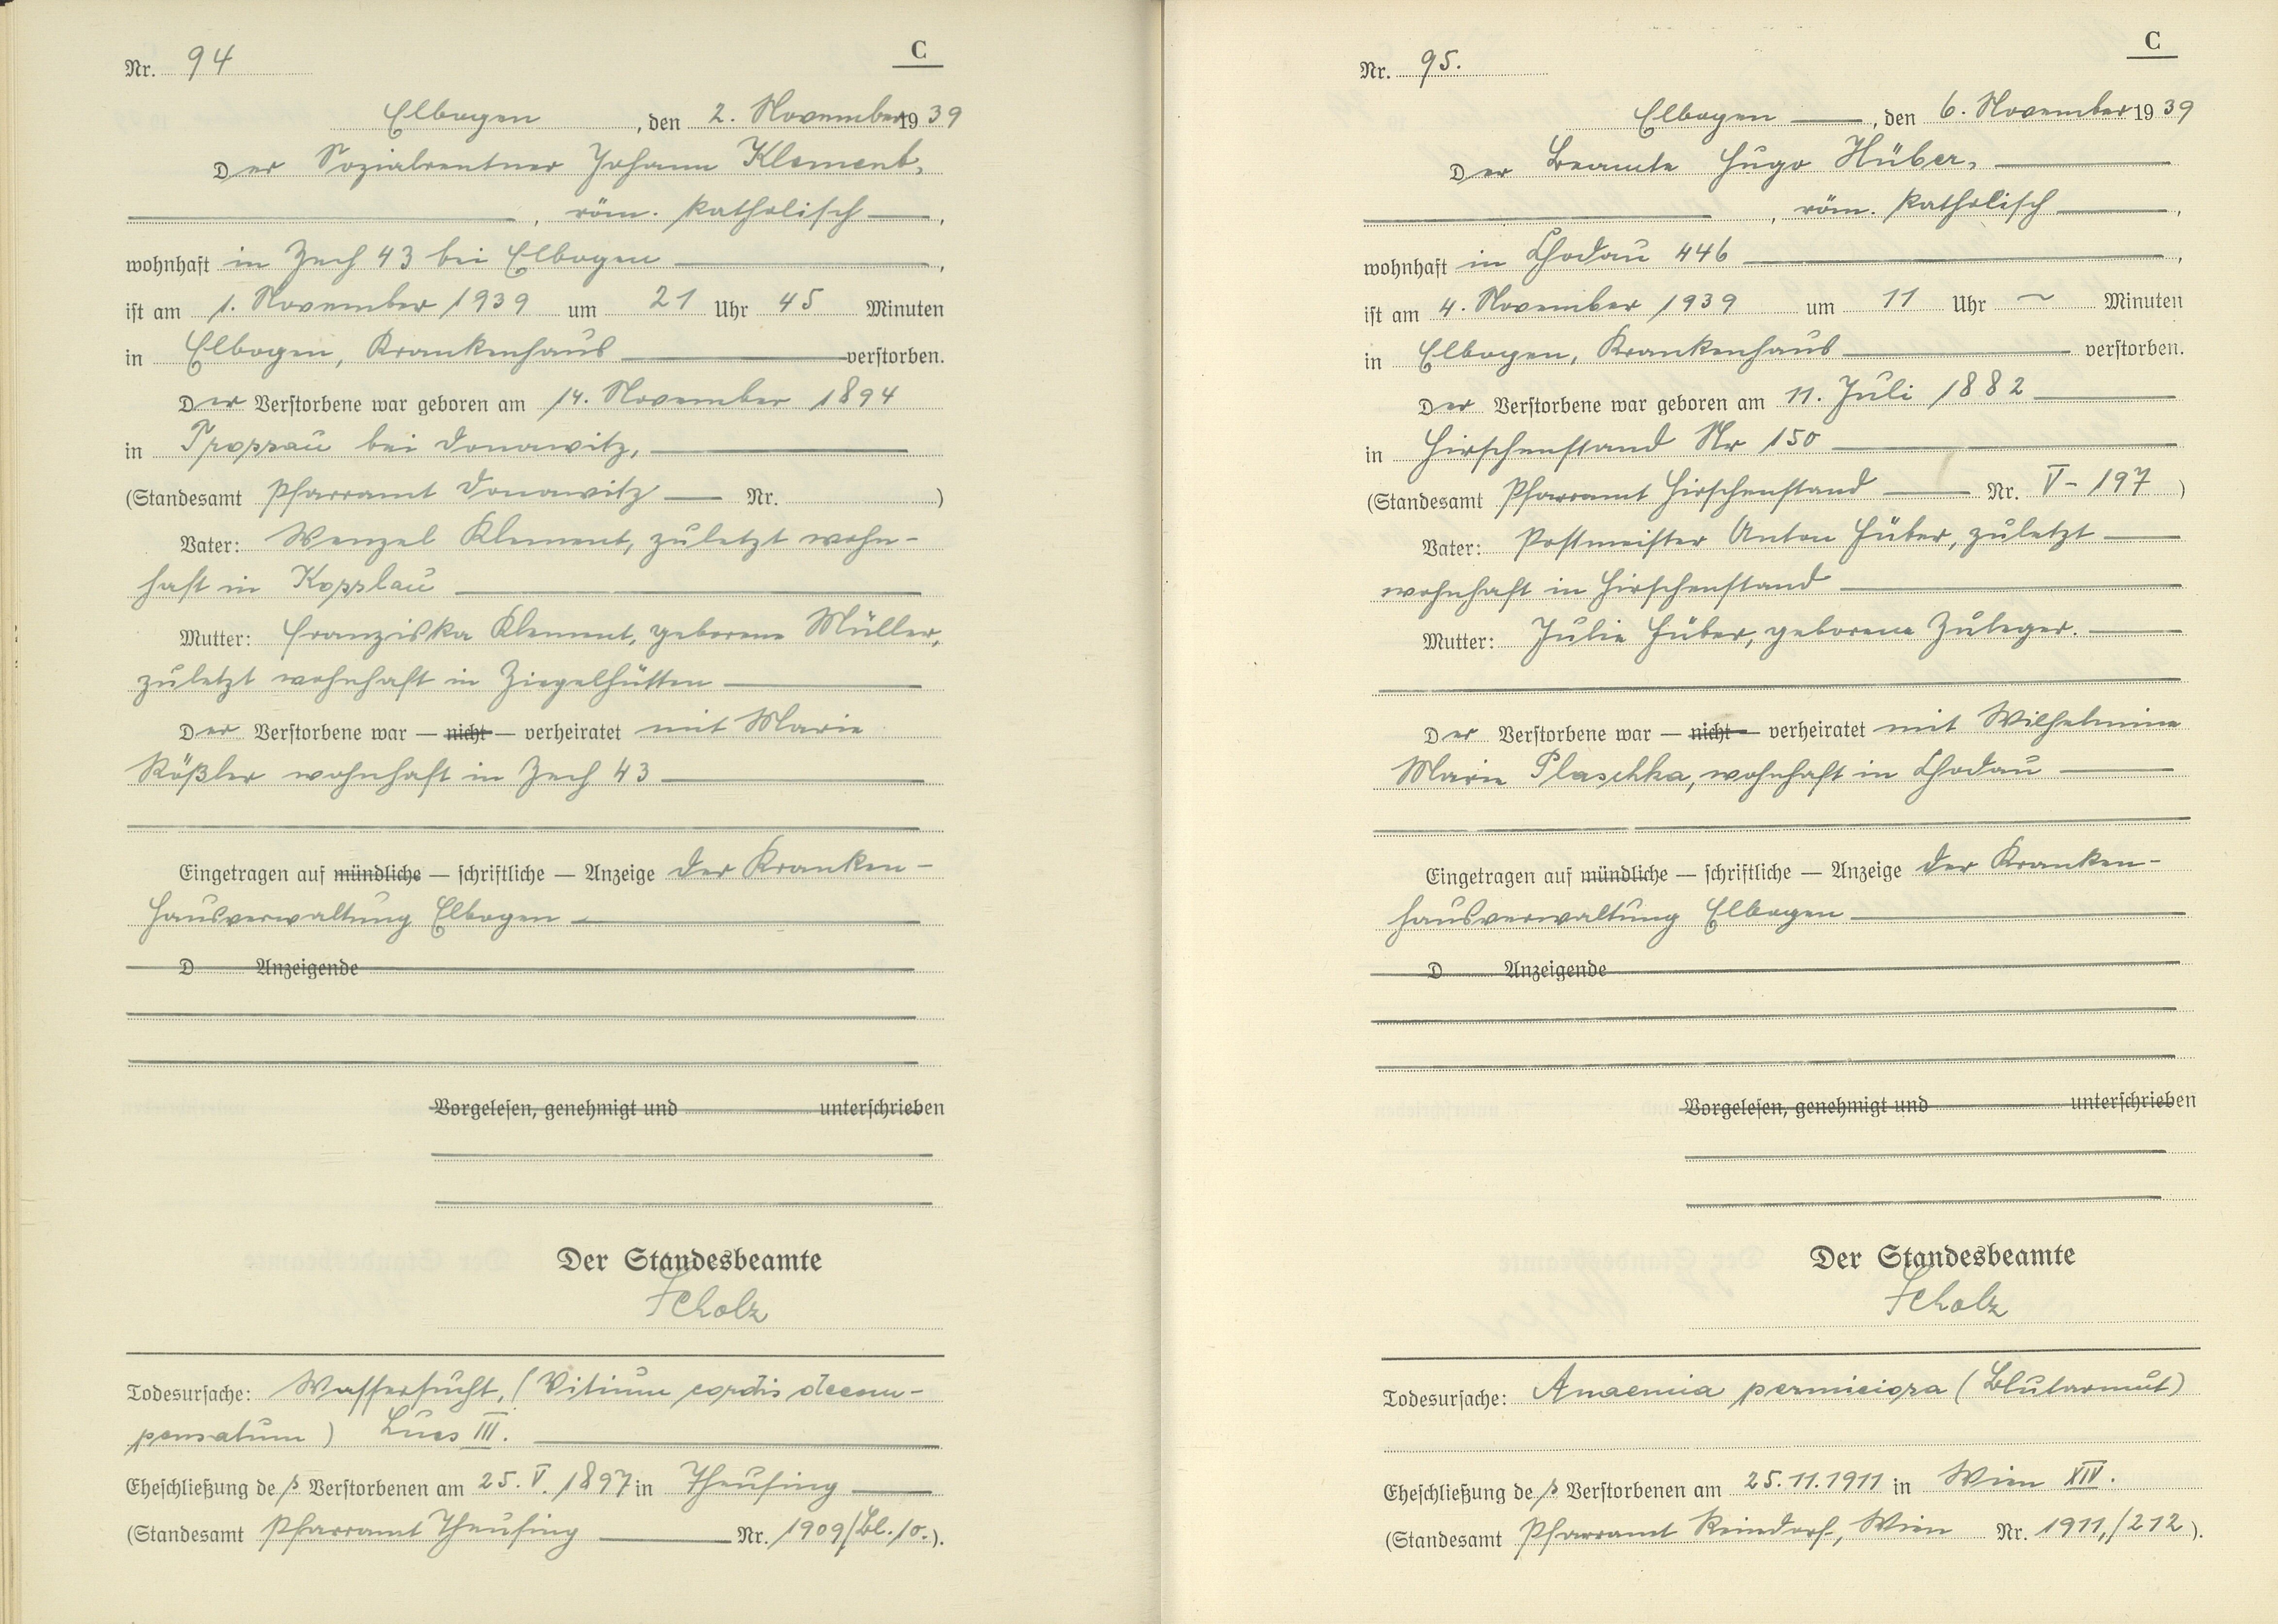 Nr. 94
C
Elbogen, den 2. November 1939
Der Sozialrentner Johann Klement,
, röm. katholisch,
wohnhaft in Zech 43 bei Elbogen,
ist am 1. November 1939 um 21 Uhr 45 Minuten
in Elbogen, Krankenhaus verstorben.
Der Verstorbene war geboren am 14. November 1894
in bei Donawitz,
(Standesamt Pfarramt Donawitz Nr. )
Vater: Wenzel Klement, zuletzt wohn-
haft in
Mutter: Franziska Klement, geborene Müller,
zuletzt wohnhaft in Ziegelhütten
Der Verstorbene war — nicht — verheiratet mit Marie
Rößler wohnhaft in Zech 43
Eingetragen auf mündliche — schriftliche — Anzeige der Kranken-
hausverwaltung Elbogen
D Anzeigende
Vorgelesen, genehmigt und unterschrieben
Der Standesbeamte
Scholz
Todesursache: Wassersucht, (Vitium cordis decom-
pensatum) Lues III.
Eheschließung des Verstorbenen am 25. V. 1897 in Theusing
(Standesamt Pfarramt Theusing Nr. 1909/Bl. 10.).
Nr. 95.
C
Elbogen, den 6. November 1939
Der Beamte Hugo Hüber,
, röm. katholisch,
wohnhaft in Chodau 446,
ist am 4. November 1939 um 11 Uhr ~ Minuten
in Elbogen, Krankenhaus verstorben.
Der Verstorbene war geboren am 11. Juli 1882
in Hirschenstand Nr 150
(Standesamt Pfarramt Hirschenstand Nr. V-197)
Vater: Postmeister Anton Hüber, zuletzt
wohnhaft in Hirschenstand
Mutter: Julie Hüber, geborene Zuleger.
Der Verstorbene war — nicht — verheiratet mit Wilhelmine
Marie Plaschka, wohnhaft in Chodau
Eingetragen auf mündliche — schriftliche — Anzeige der Kranken-
hausverwaltung Elbogen
D Anzeigende
Vorgelesen, genehmigt und unterschrieben
Der Standesbeamte
Scholz
Todesursache: Anaemia perniciosa (Blutarmut)
Eheschließung des Verstorbenen am 25.11.1911 in Wien XIV.
(Standesamt Pfarramt Reindorf, Wien Nr. 1911,/212).